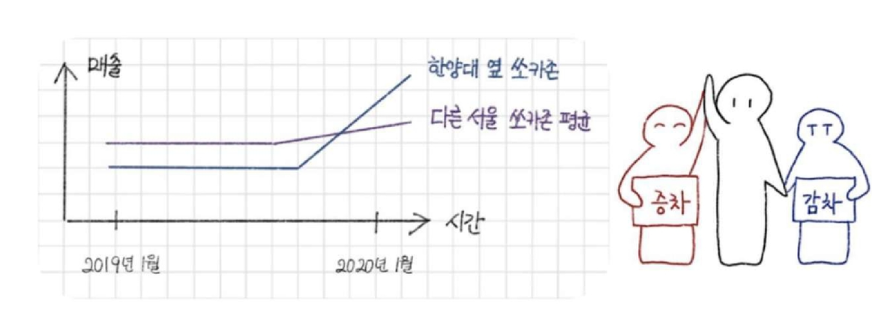 매출
한양대 옆 쏘카존
다른 서울 쏘카존 평균
시간
2019년 1월
2020년 1월
증차
감차
TT